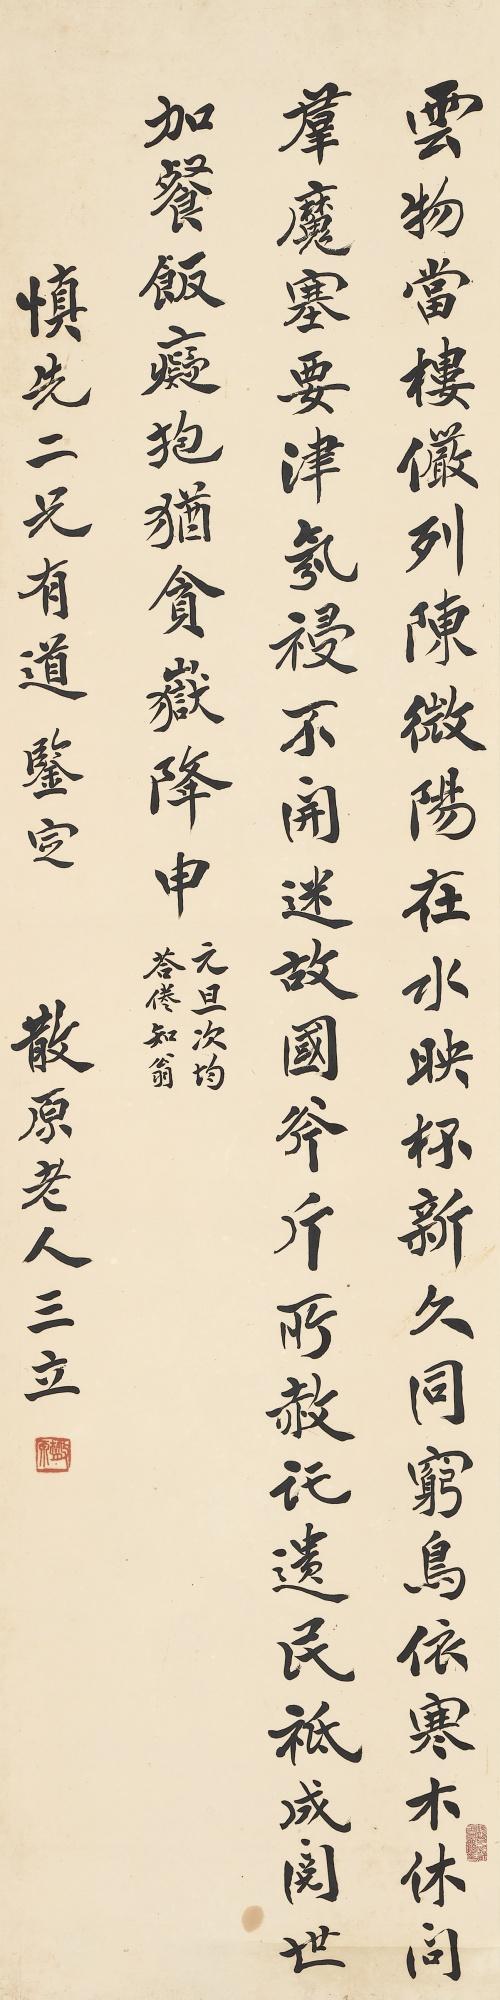 雲物當樓儼列陳微陽在水映杯新久同窮鳥依寒木休問
羣魔塞要津氛祲不開迷故國斧斤所赦託遺民祗成閱世
加餐飯癡抱猶貪嶽降申
元旦次均
答倦知翁
慎先二兄有道鑒定 散原老人三立